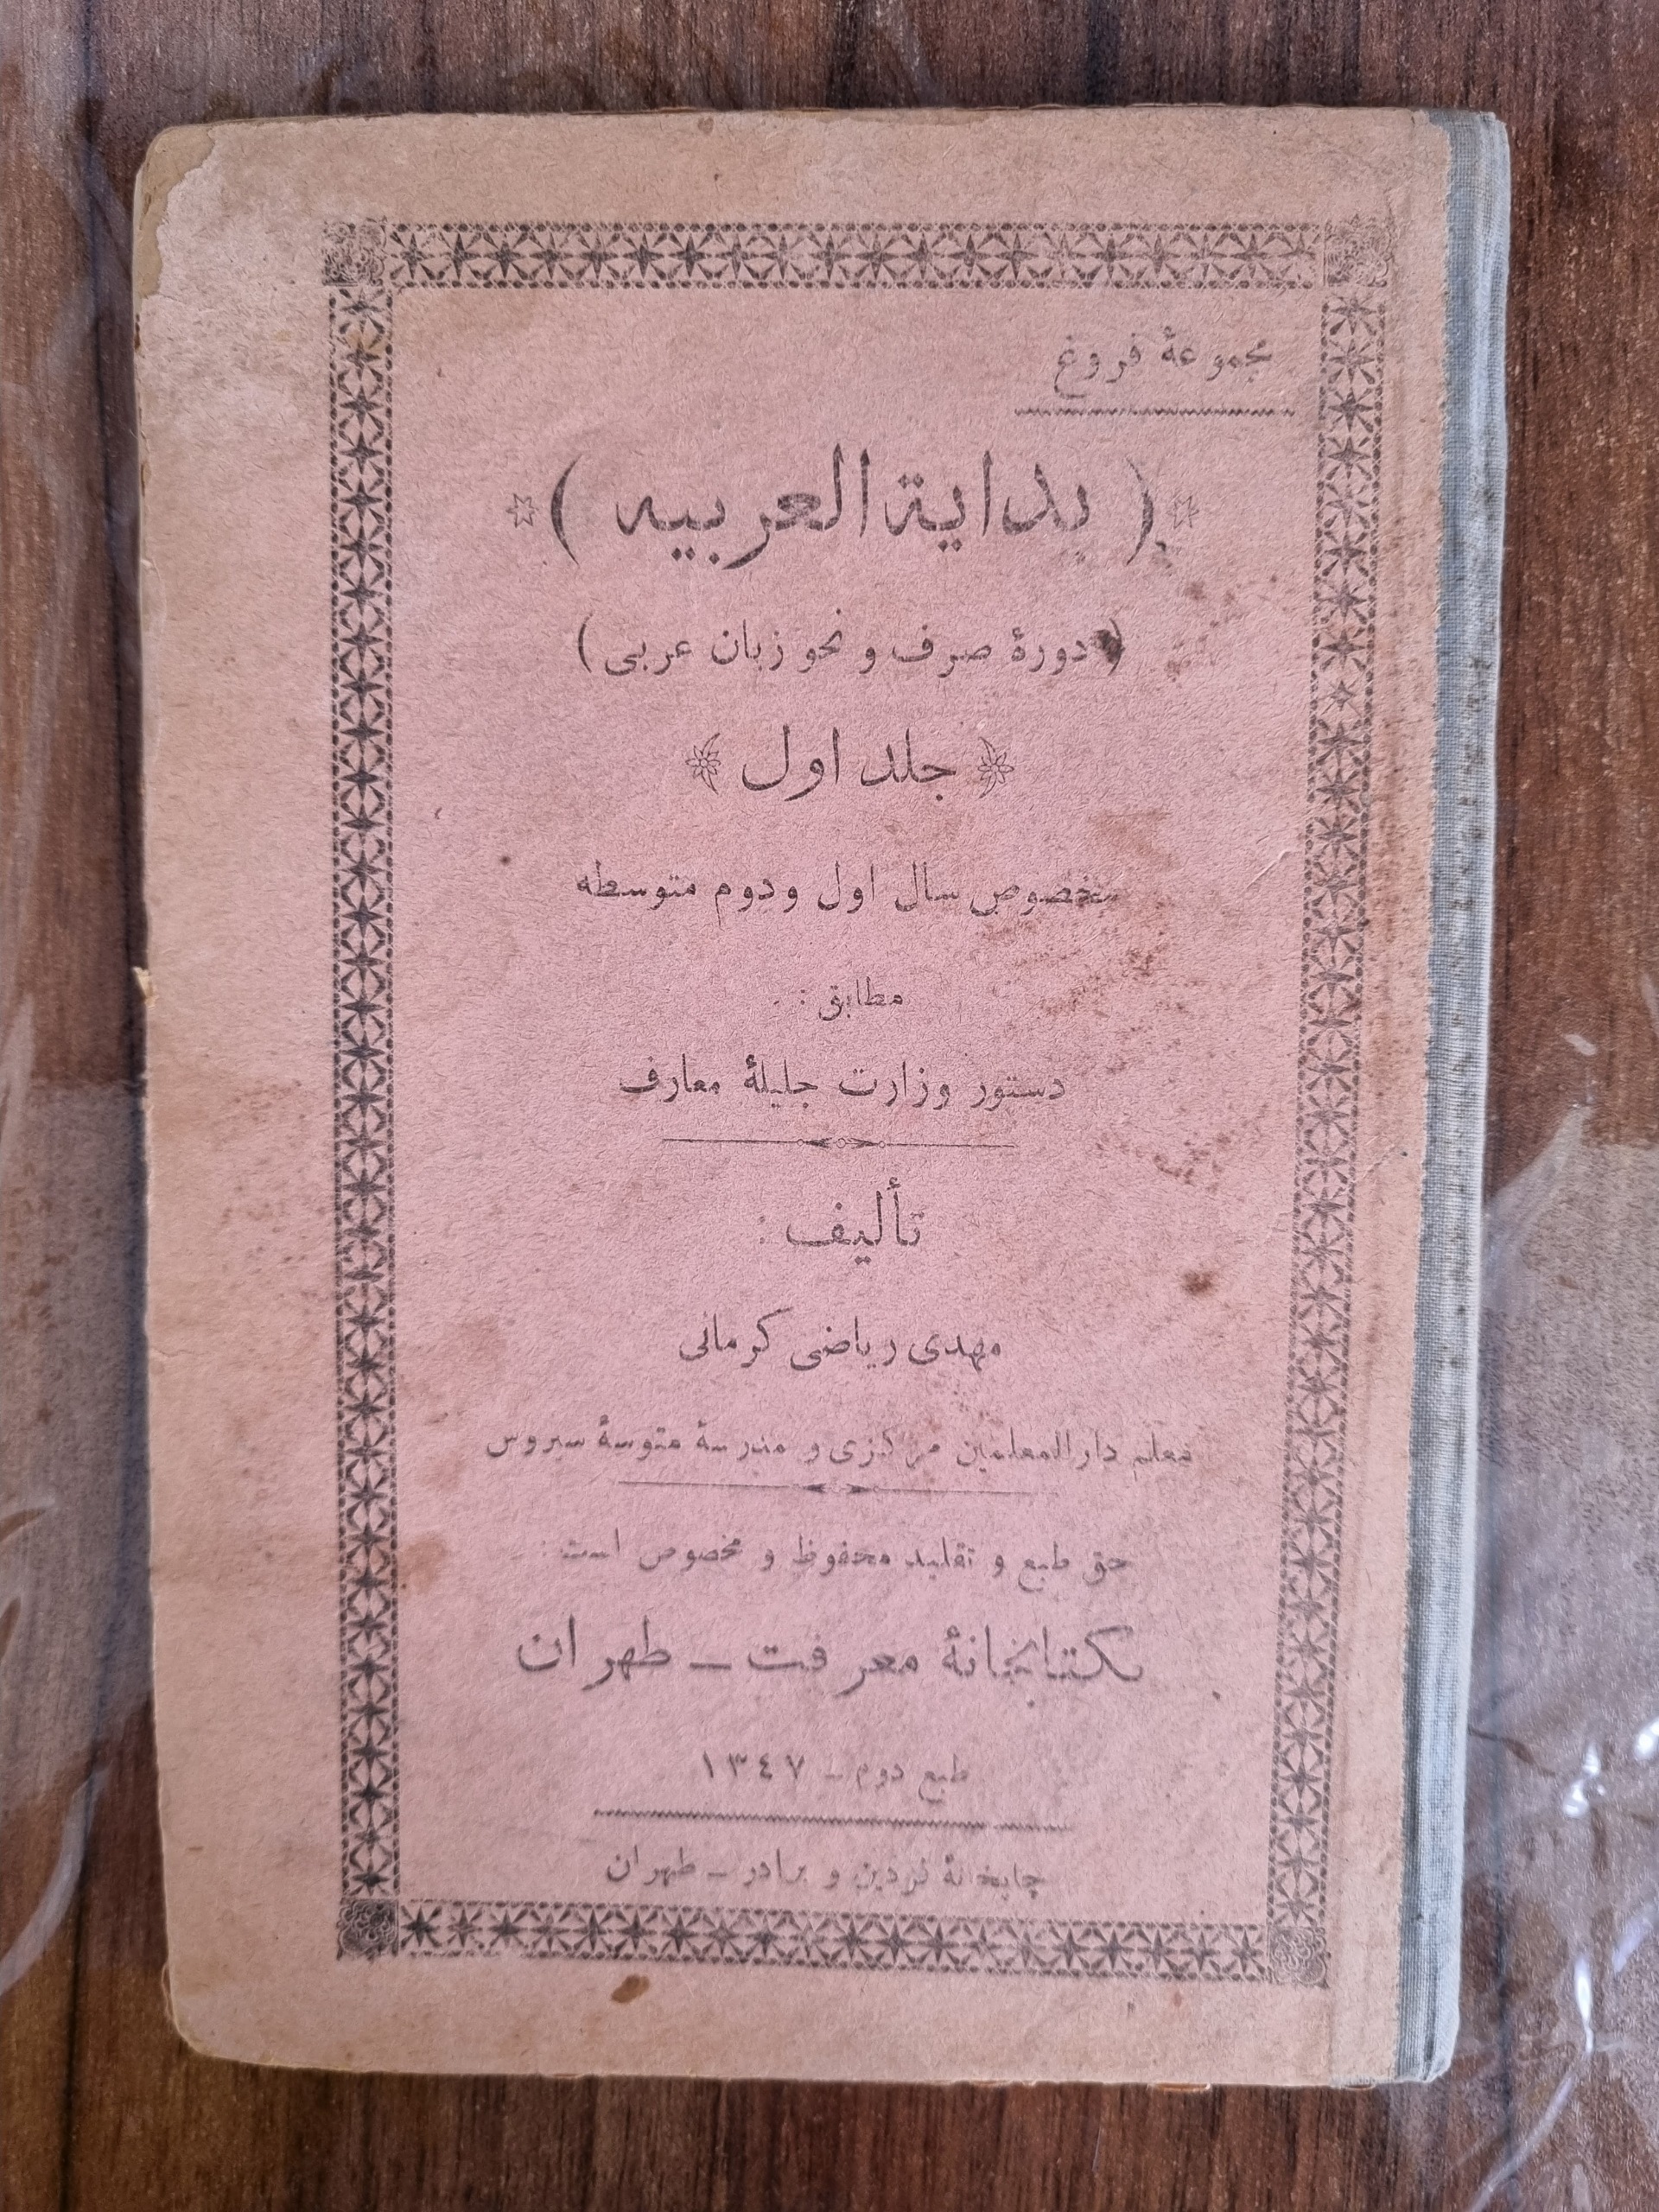 مجموعهٔ فروغ
( بدایة العربیه )
( دورهٔ صرف و نحو زبان عربی )
جلد اول
مخصوص سال اول و دوم متوسطه
مطابق :
دستور وزارت جلیلهٔ معارف
تألیف :
مهدی ریاضی کرمانی
معلم دار المعلمین مرکزی و مدرسهٔ متوسهٔ سیروس
حق طبع و تقلید محفوظ و مخصوص است :
بکتابخانهٔ معرفت ـ طهران
طبع دوم ـ ١٣٤٧
چاپخانهٔ فردین و برادر ـ طهران